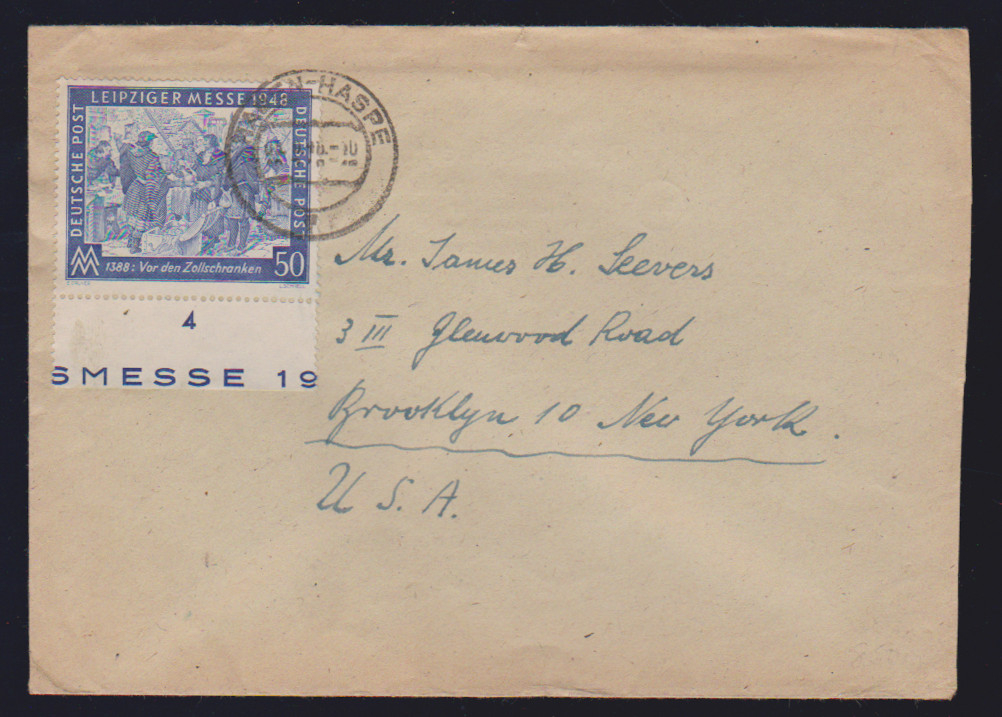 LEIPZIGER MESSE 1948
DEUTSCHE POST
DEUTSCHE POST
1388: Vor den Zollschranken
50
4
SMESSE 19
HAGEN-HASPE
Mr. James H. Seevers
3 III Glenwood Road
Brooklyn 10 New York.
U. S. A.